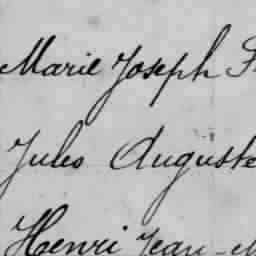 Marie Joseph F
Jules Auguste
Henri Jean-M